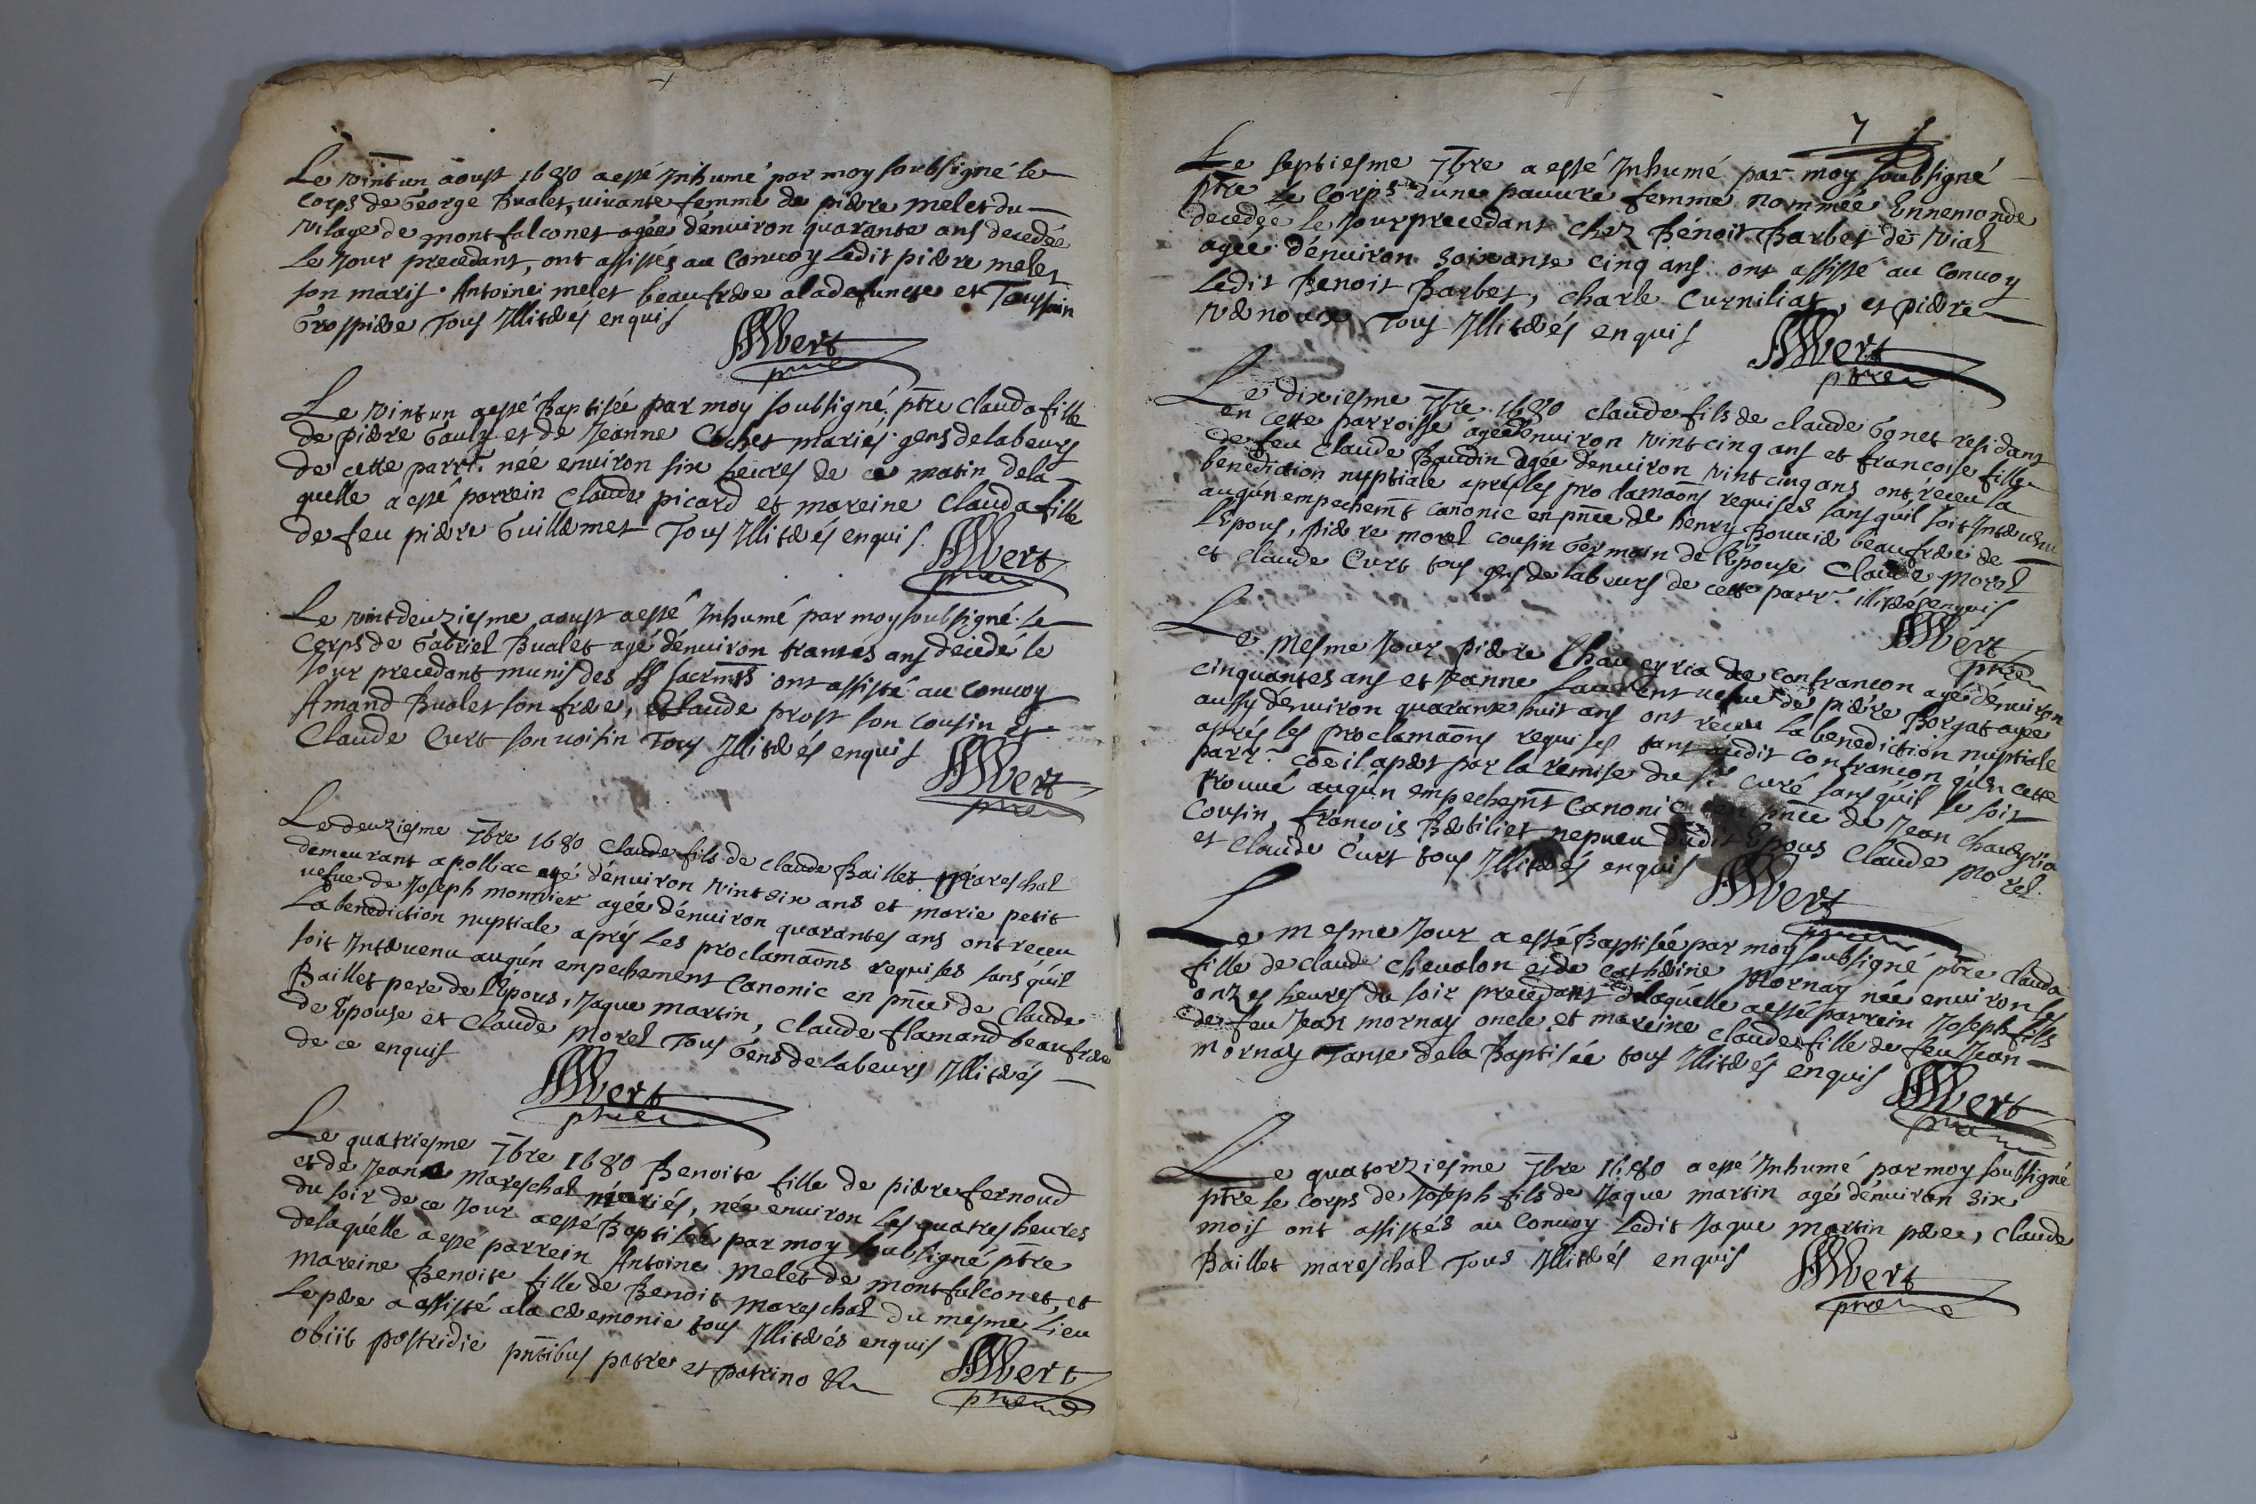 Le vint un aoust 1680 a esté Inhumé par moy soubsigné le
Corps de George Bualet, vivante femme de pierre melet du
vilage de montfalconet agée d'environ quarante ans decedée
le jour precedant, ont assistés au Convoy Ledit pierre melet
son maris Antoine melet beaufrere a la defuncte et Toussain
Grospierre Tous Illiterés enquis
Wert
ptre
Le vint un a esté Baptisée par moy soubsigné ptre Clauda fille
de pierre Gauly et de Jeanne Cochet mariés gens de labeurs
de cette parr. née environ six heures de ce matin de la
quelle a esté parrein Claude picard et mareine Clauda fille
de feu pierre Guillermet Tous Illiterés enquis
Wert
ptre
Le vint deuziesme aoust a esté Inhumé par moy soubsigné le
Corps de Gabriel Bualet agé d'environ trantes ans decedé le
jour precedant munis des SS sacrmts ont assisté au Convoy
Amand Bualet son frere, Claude prost son cousin et
Claude Curt son voisin Tous Illiterés enquis
Wert
ptre
Le deuziesme 7bre 1680 Claude fils de Claude Baillet mareschal
demeurant a polliac agé d'environ vint six ans et marie petit
vefve de Joseph monnier agée d'environ quarantes ans ont receu
La benediction nuptiale aprés Les proclamaons requises sans qu'il
soit Intervenu auqu'n empechement Canonic en pnce de Claude
Baillet pere de l'Epous, Jaque martin, Claude flamand beaufrere
de Epouse et Claude Morel Tous Gens de labeurs Illiterés
de ce enquis
Wert
ptre
Le quatriesme 7bre 1680 Benoite fille de pierre fernoud
et de Jeanne Mareschal mariés, née environ Les quatres heures
du soir de ce jour a esté Baptisée par moy soubsigné ptre
de laquelle a esté parrein Antoine Melet de montfalconet, et
mareine Benoite fille de Benoit Mareschal du mesme Lieu
Le pere a assisté a la ceremonie tous Illiterés enquis
obiit postridie pntibus patre et patrino &c
Wert
ptre
7
Le septiesme 7bre a esté Inhumé par moy soubsigné
ptre le Corps d'une pauvre femme nommée Ennemonde
decedée le jour precedant chez Benoit Barbet de vial
agée d'environ soixante cinq ans ont assisté au Convoy
Ledit Benoit Barbet, Charle Curniliat, et pierre
Tous Illiterés enquis
Wert
ptre
Le dixiesme 7bre 1680 Claude fils de Claude Gonet residant
en cette parroisse agé d'environ vint cinq ans et francoise fille
de feu Claude Baudin agée d'environ vint cinq ans ont receu la
benediction nuptiale aprés les proclamaons requises sans qu'il soit Intervenu
auqu'n empechemt canonic en pnce de henry Bouvié beaufrere de
l'Epous, pierre morel cousin Germain de l'Epouse Claude Morel
et Claude Curt tous gens de labeurs de cette parr. illiterés enquis
Wert
ptre
Le Mesme Jour pierre Chaveyria de Confrancon agé d'environ
cinquantes ans et Jeanne Laurent vefve de pierre Borgat agée
aussy d'environ quarante huit ans ont receu La benediction nuptiale
aprés les proclamaons requises tant audit Confrancon qu'en cette
parr. coe il apert par la remise du Sr curé sans qu'il se soit
trouvé auqu'n empechemt Canonic en pnce de Jean Chaveyria
Cousin, francois Bretiliet nepveu dudit Epous Claude Morel
et Claude Curt tous Illiterés enquis
Wert
ptre
Le Mesme Jour a esté Baptisée par moy soubsigné ptre Clauda
fille de Claude Chevalon et de Catherine Mornay née environ les
onzes heures du soir precedant de laquelle a esté parrein Joseph fils
de feu Jean mornay oncle, et mareine Clauda fille de feu Jean
mornay Tante de la Baptisée tous Illiterés enquis
Wert
ptre
Le quatorziesme 7bre 1680 a esté Inhumé par moy soubsigné
ptre le corps de Joseph fils de Jaque martin agé d'environ six
mois ont assistés au Convoy Ledit Jaque martin pere, Claude
Baillet mareschal Tous Illiterés enquis
Wert
ptre